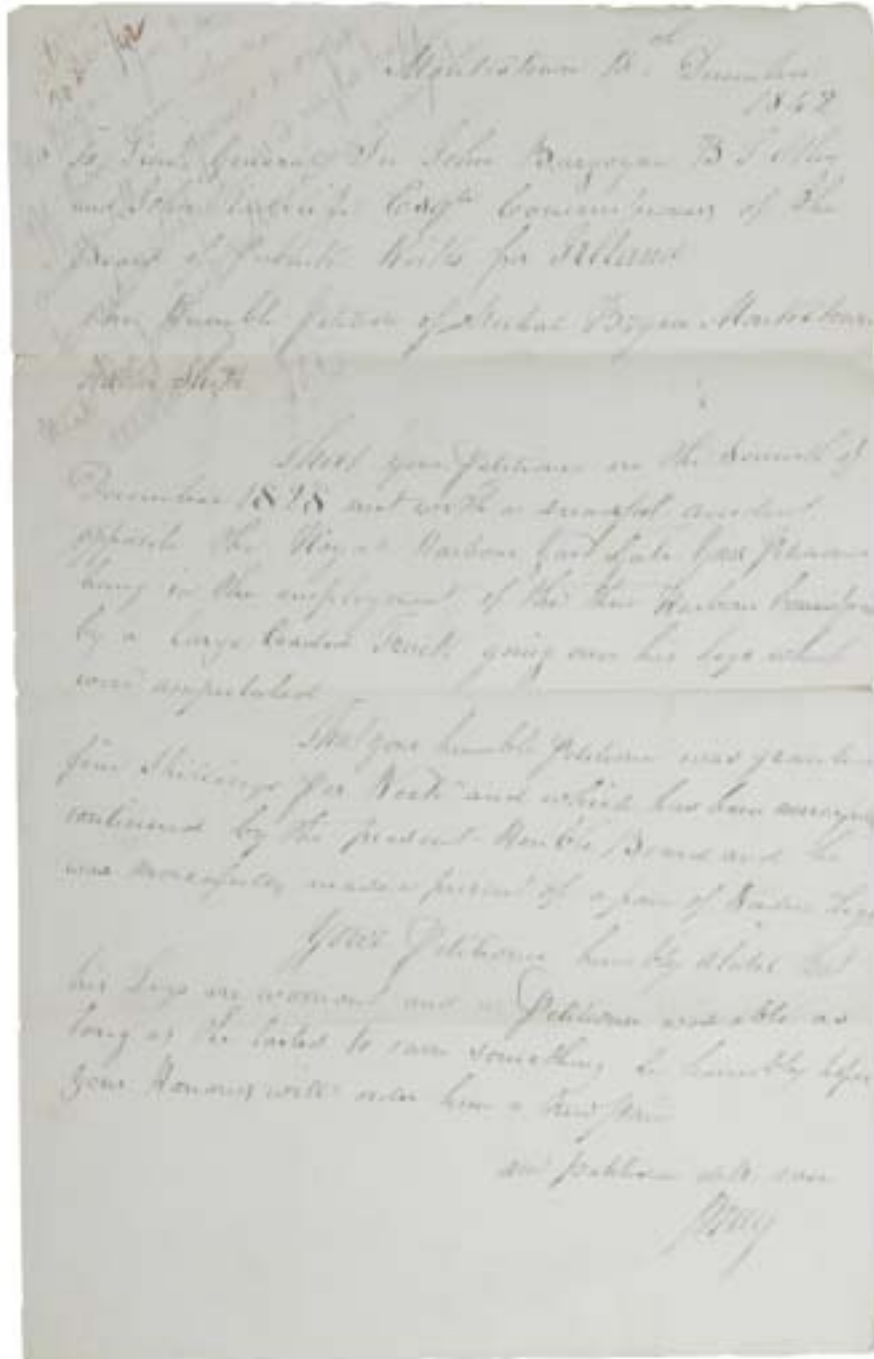 December
1842
To General Sir John Burgoyne
and John Esq Commissioners of the
Board of Public Works for Ireland
The Humble petition of Bryan Monkstown
That your Petitioner on the Second of
December 1828 met with a accident
opposite the Royal Harbour Yard Gate Your Petitioner
being in the employment of the then Harbour
by a Large Loaded Truck going over his Legs which
were amputated
That your humble Petitioner was granted
Shillings per Week and which has been
continued by the present Honble Board and he
was mercifully made a present of a pair of Wooden Legs
Your Petitioner humbly states that
his Legs are wornout and as Petitioner was able as
long as the lasted to earn something he humbly hopes
your Honours will order him a New pair
and petitioner will ever
pray